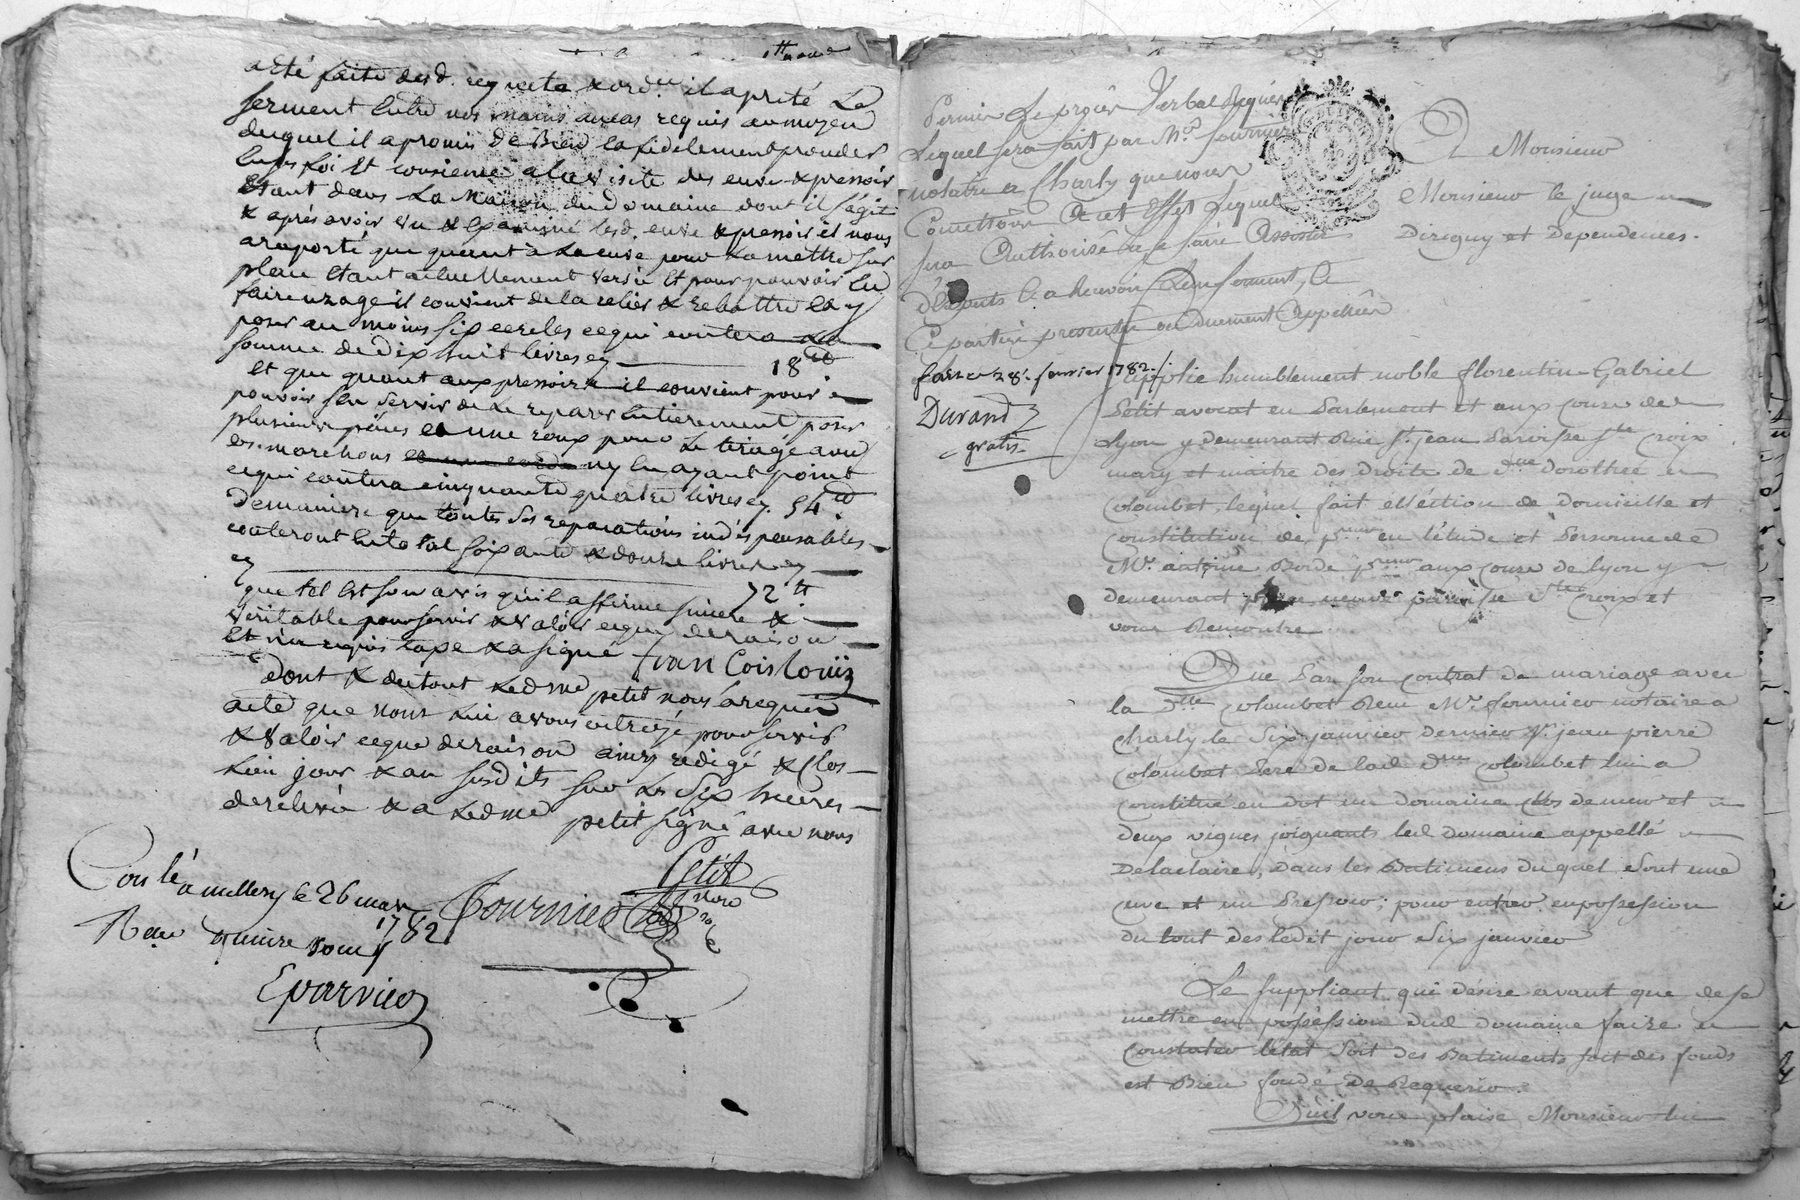 acte faite desd. requete & ord.ce il a preté le
serment entre nos mains au cas requis au moyen
duquel il a promis de bien & fidelement proceder
en foi et consience a la visite des cuve & pressoir
étant dans la maison du domaine dont il s'agit
& après avoir vu & examiné lesd. cuve & pressoir il nous
a raporté que quant a la cuve pour la mettre sur
plan étant actuellement versée et pour pouvoir en
faire uzage il convient de la relier & rebattre et y
poser au moins six cercles ce qui coutera la
somme de dix huit livres cy 18tt
et que quant aux pressoir il convient pour
pouvoir s'en servir de le reparer entierement poser
plusieurs pièces et une roux pour le tirage avec
les marchons ny en ayant point
ce qui coutera cinquante quatre livres cy. 54tt
de maniere que toutes les reparations indispensables
couteront en total soixante & douze livres cy
cy 72tt
que tel est son avis qu'il affirme sincere &
veritable pour servir & valoir ce que de raison
et requis tape & a signé francois louis
dont & du tout led me petit nous a requis
acte que nous lui avons octroyé pour servir
& valoir ce que de raison ainsy redigé & clos
lesd jour & an susdits sur les six heures
de relevée & a led me petit signé avec nous
Petit
Fournier nore
Con lé a millery le 26 mars
1782
Reçu quinze sous
Eparvier
Permis le procès verbal requis
lequel sera fait par Me fournier
notaire a Charly que nous
Comettons a cet effet lequel
sera authorisé a se faire assister
d'experts & a recevoir leur serment, les
parties presentes ou duement appellées
fait ce 28. fevrier 1782.
Durand
gratis
A Monsieur
Monsieur le juge
Dirigny et Dependences.
Supplie humblement noble florentin Gabriel
Petit avocat en Parlement et aux cours de
Lyon y demeurant Rue St. jean Paroisse Ste Croix
mary et maitre des droits de dlle dorothée
Colombet, lequel fait elléction de domicille et
constitution de pr en l'étude et Personne de
Me. antoine Borde pr aux cours de lyon y
demeurant place neuve paroisse Ste croix et
vous Remontre
Que Par son contrat de mariage avec
la Dlle Colombet Reçu Me fournier notaire a
Charly le six janvier dernier Sr. jean pierre
Colombet Pere de lad dlle Colombet lui a
constitué en dot un domaine clos de mur et
deux vignes joignants led domaine appellé
Delaclaire, dans les Batimens duquel sont une
cuve et un Pressoir; pour entrer en possession
du tout des ledit jour six janvier
Le suppliant qui désire avant que de se
mettre en possession dud domaine faire
constater l'état soit des Batiments soit des fonds
est Bien fondé de Requerir.
Qu'il vous plaise Monsieur lui